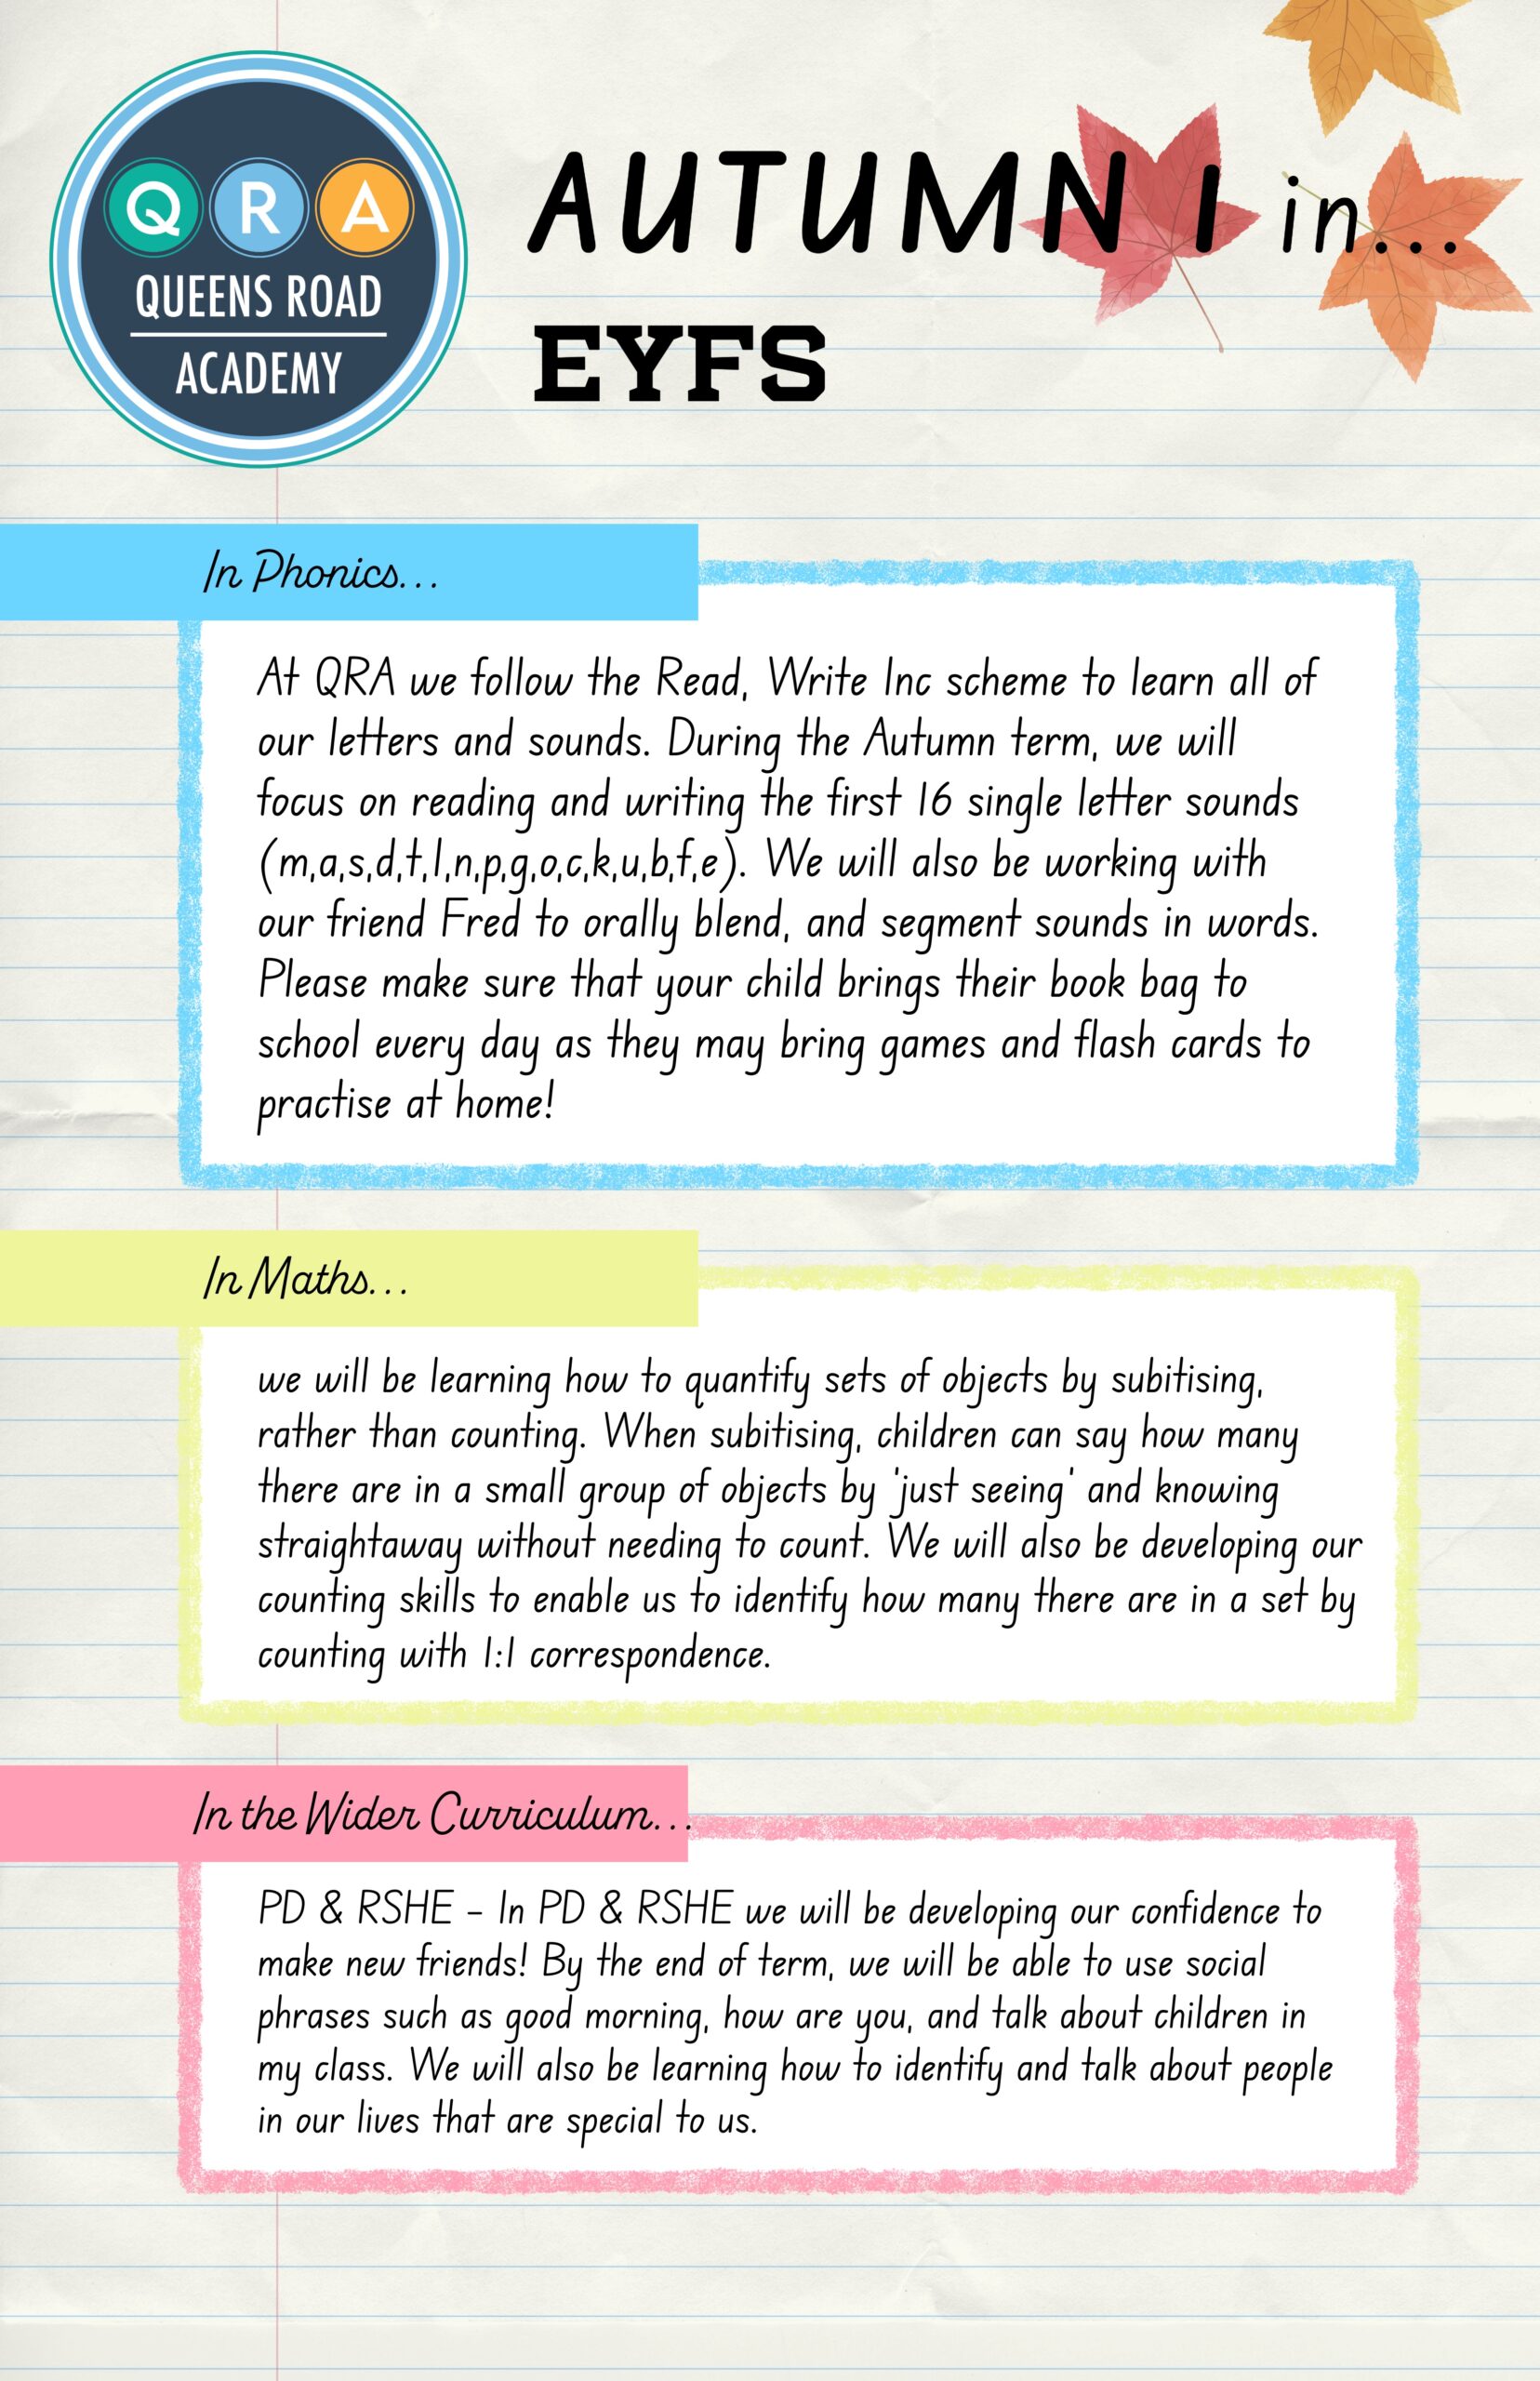 Q R A
QUEENS ROAD
ACADEMY
AUTUMN 1 in...
EYFS
In Phonics...
At QRA we follow the Read, Write Inc scheme to learn all of
our letters and sounds. During the Autumn term, we will
focus on reading and writing the first 16 single letter sounds
(m,a,s,d,t,l,n,p,g,o,c,k,u,b,f,e). We will also be working with
our friend Fred to orally blend, and segment sounds in words.
Please make sure that your child brings their book bag to
school every day as they may bring games and flash cards to
practise at home!
In Maths...
we will be learning how to quantify sets of objects by subitising,
rather than counting. When subitising, children can say how many
there are in a small group of objects by 'just seeing' and knowing
straightaway without needing to count. We will also be developing our
counting skills to enable us to identify how many there are in a set by
counting with 1:1 correspondence.
In the Wider Curriculum...
PD & RSHE - In PD & RSHE we will be developing our confidence to
make new friends! By the end of term, we will be able to use social
phrases such as good morning, how are you, and talk about children in
my class. We will also be learning how to identify and talk about people
in our lives that are special to us.